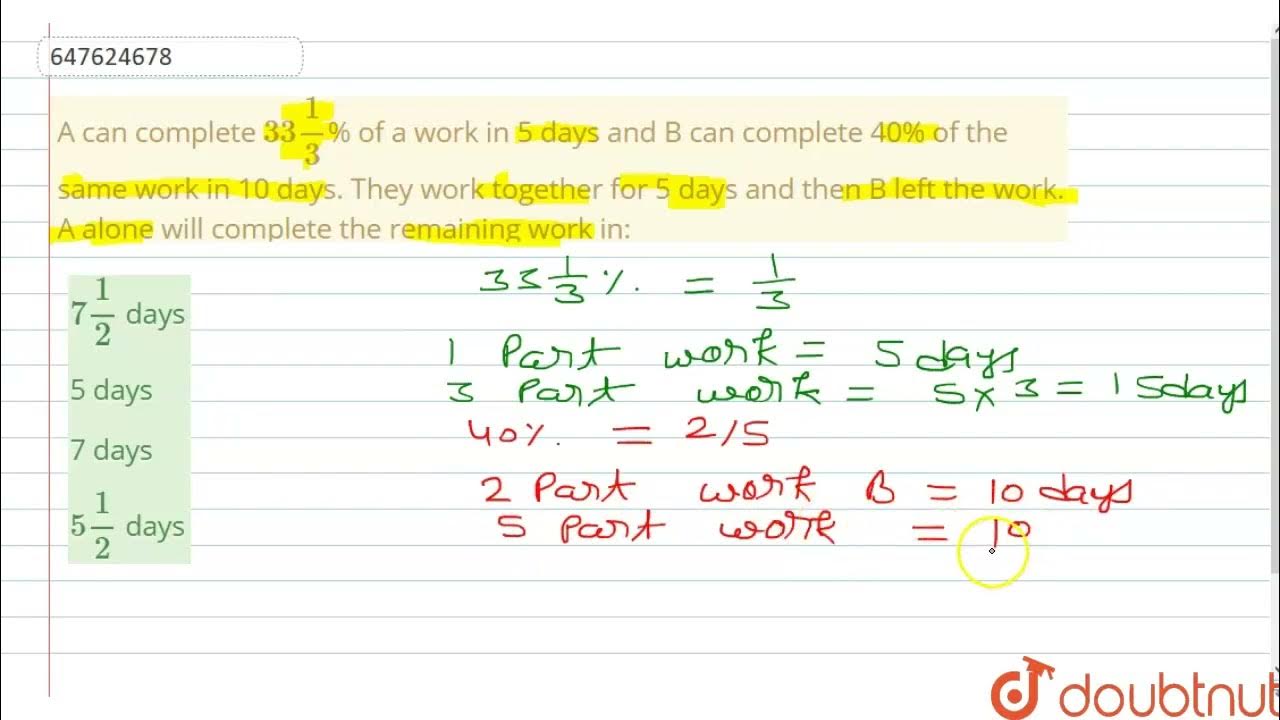 647624678
A can complete 33 1/3 % of a work in 5 days and B can complete 40% of the
same work in 10 days. They work together for 5 days and then B left the work.
A alone will complete the remaining work in:
7 1/2 days
5 days
7 days
5 1/2 days
33 1/3 % = 1/3
1 Part work = 5 days
3 Part work = 5 × 3 = 15days
40% = 2/5
2 Part work B = 10 days
5 Part work = 10
doubtnut